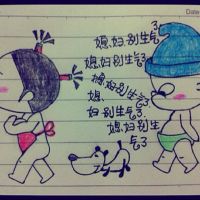 Date
媳妇别生气了
媳妇别生气了
媳妇别生气了
媳
妇别生气了
媳妇别生
气了